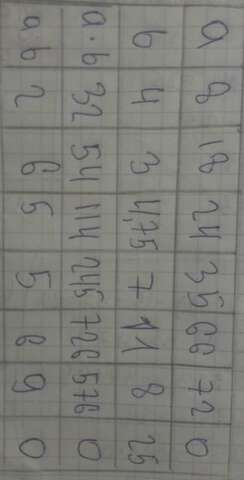 a 8 18 24 35 66 72 0
b 4 3 4,75 7 11 8 25
a·b 32 54 114 245 726 576 0
a:b 2 6 5 5 6 9 0